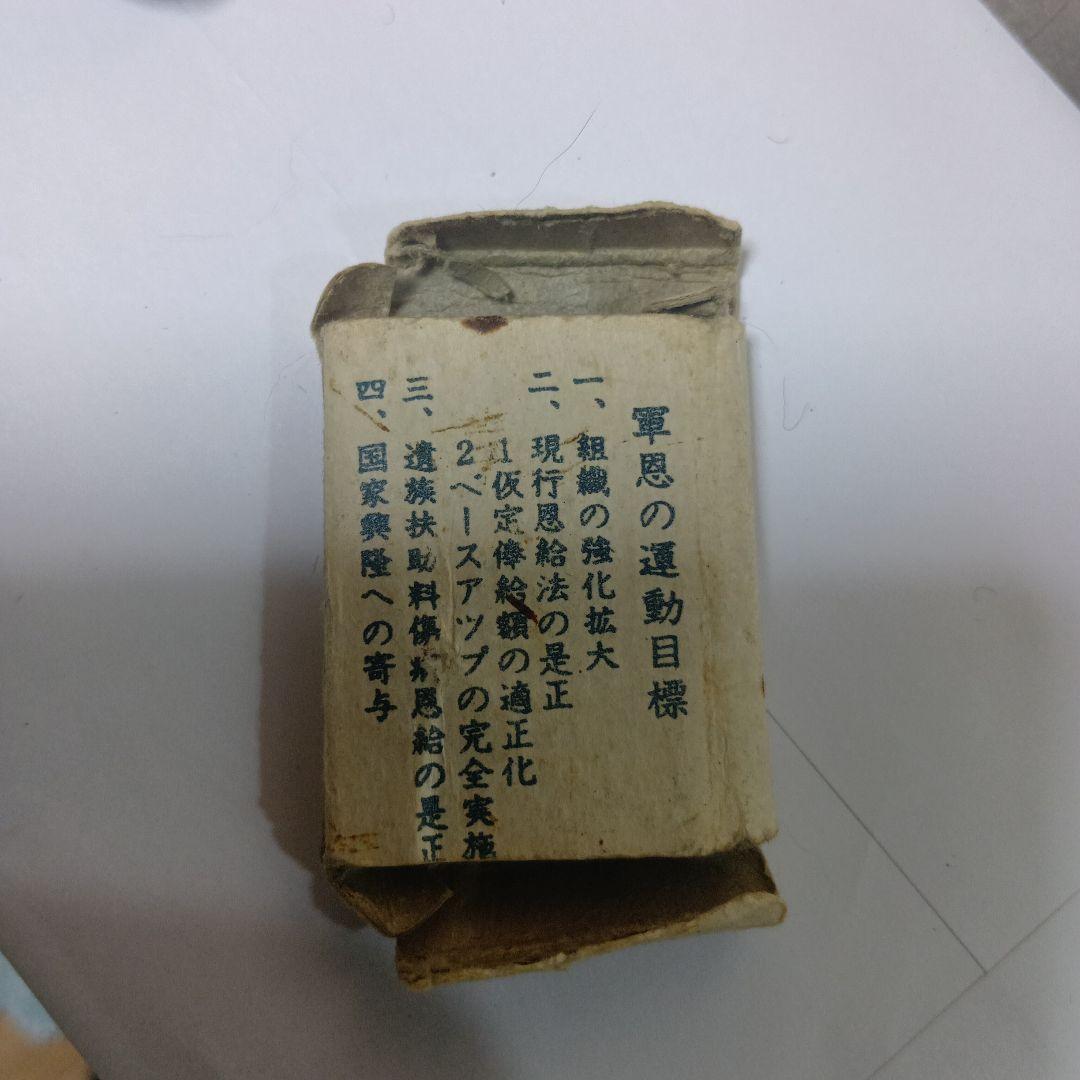 軍恩の運動目標
一、組織の強化拡大
二、現行恩給法の是正
1仮定俸給額の適正化
2ベースアツプの完全実施
三、遺族扶助料傷病恩給の是正
四、国家興隆への寄与